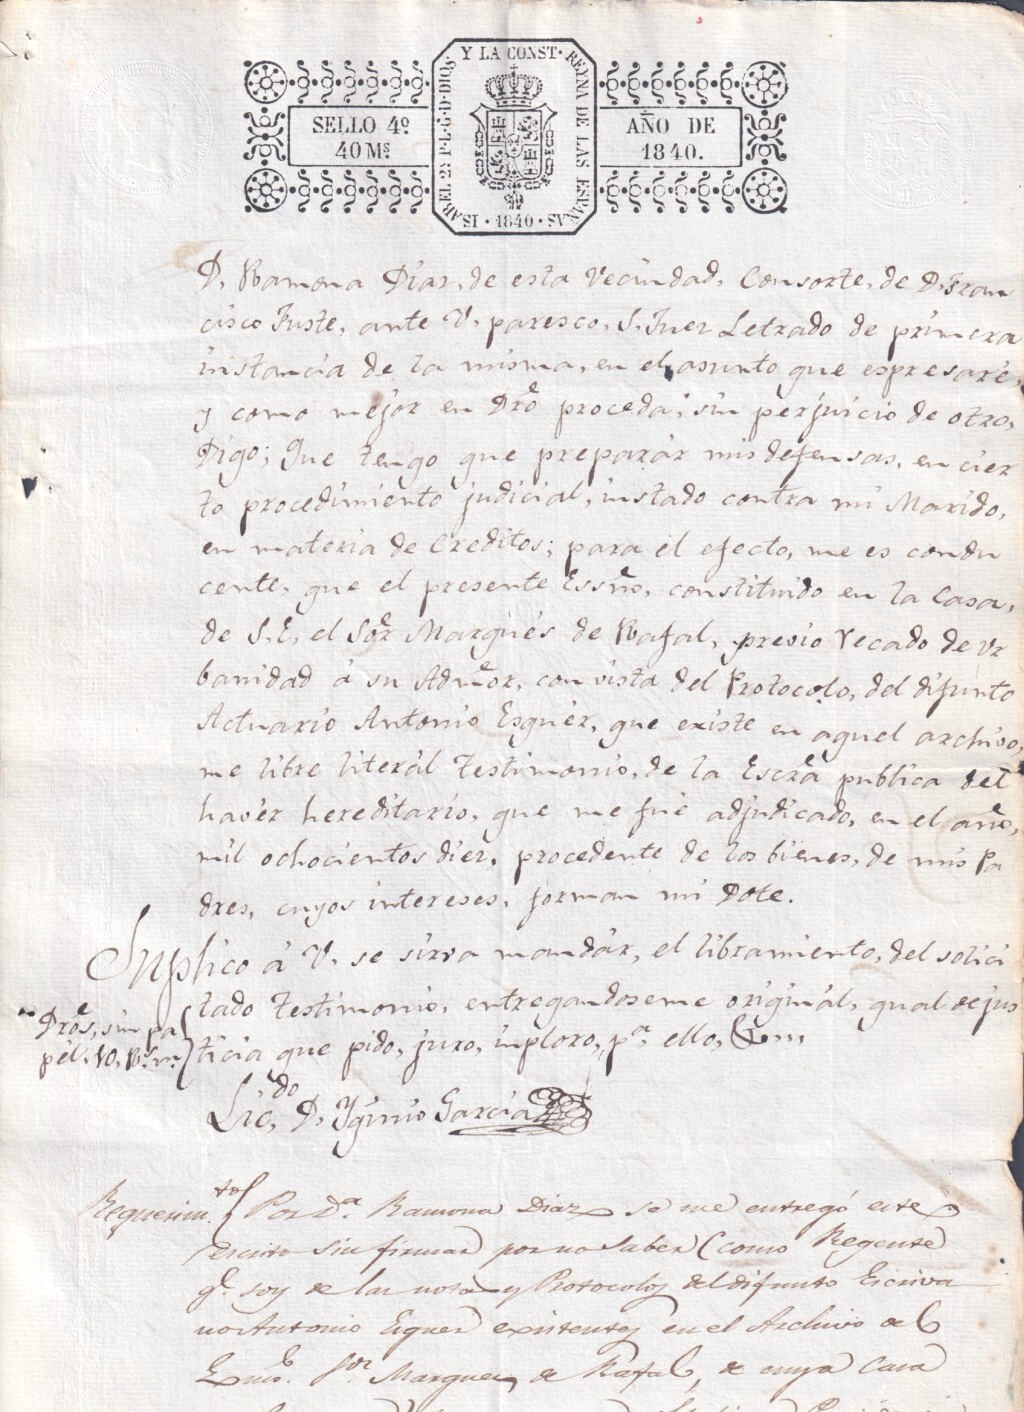 SELLO 4º
40 Ms.
ISABEL 2ª P. L. G. D. DIOS Y LA CONST. REYNA DE LAS ESPAÑAS
· 1840 ·
AÑO DE
1840.
D. Ramona Dias, de esta Vecindad, Consorte, de D. Fran
cisco Fuste, ante V. paresco, S. Juez Letrado de primera
instancia de la misma, en el asunto que espresaré,
y como mejor en Dro proceda, sin perjuicio de otro,
Digo; Que tengo que preparár mis defensas, en cier
to procedimiento judicial, instado contra mi Marido,
en materia de Creditos; para el efecto, me es condu
cente, que el presente Essno, constituido en la Casa,
de S. E. el Sor Marqués de Rafal, previo recado de ur
banidad á su Admor, con vista del Protocolo, del difunto
Actuario Antonio Esquér, que existe en aquel archivo,
me libre literál Testimonio, de la Escra publica del
havér hereditario, que me fue adjudicado, en el año,
mil ochocientos diez, procedente de los bienes, de mis Pa
dres, cuyos intereses, forman mi Dote.
Suplico á V. se sirva mandár, el libramiento, del solici
tado Testimonio, entregandoseme originál, qual de jus
ticia que pido, juro, inploro, pª ello, &
Dros, sin pa
pél. 10, Rs. m.
Licdo. D. Yginio Garcia
Requerimto. Por Dª. Ramona Diaz se me entregó este
Escrito sin firmar por no saber (como Regente
qe. soy de las notas y Protocolos del difunto Escriva
no Antonio Esquer existentes en el Archivo del
Exmo. Sor. Marques de Rafal, de cuya Casa